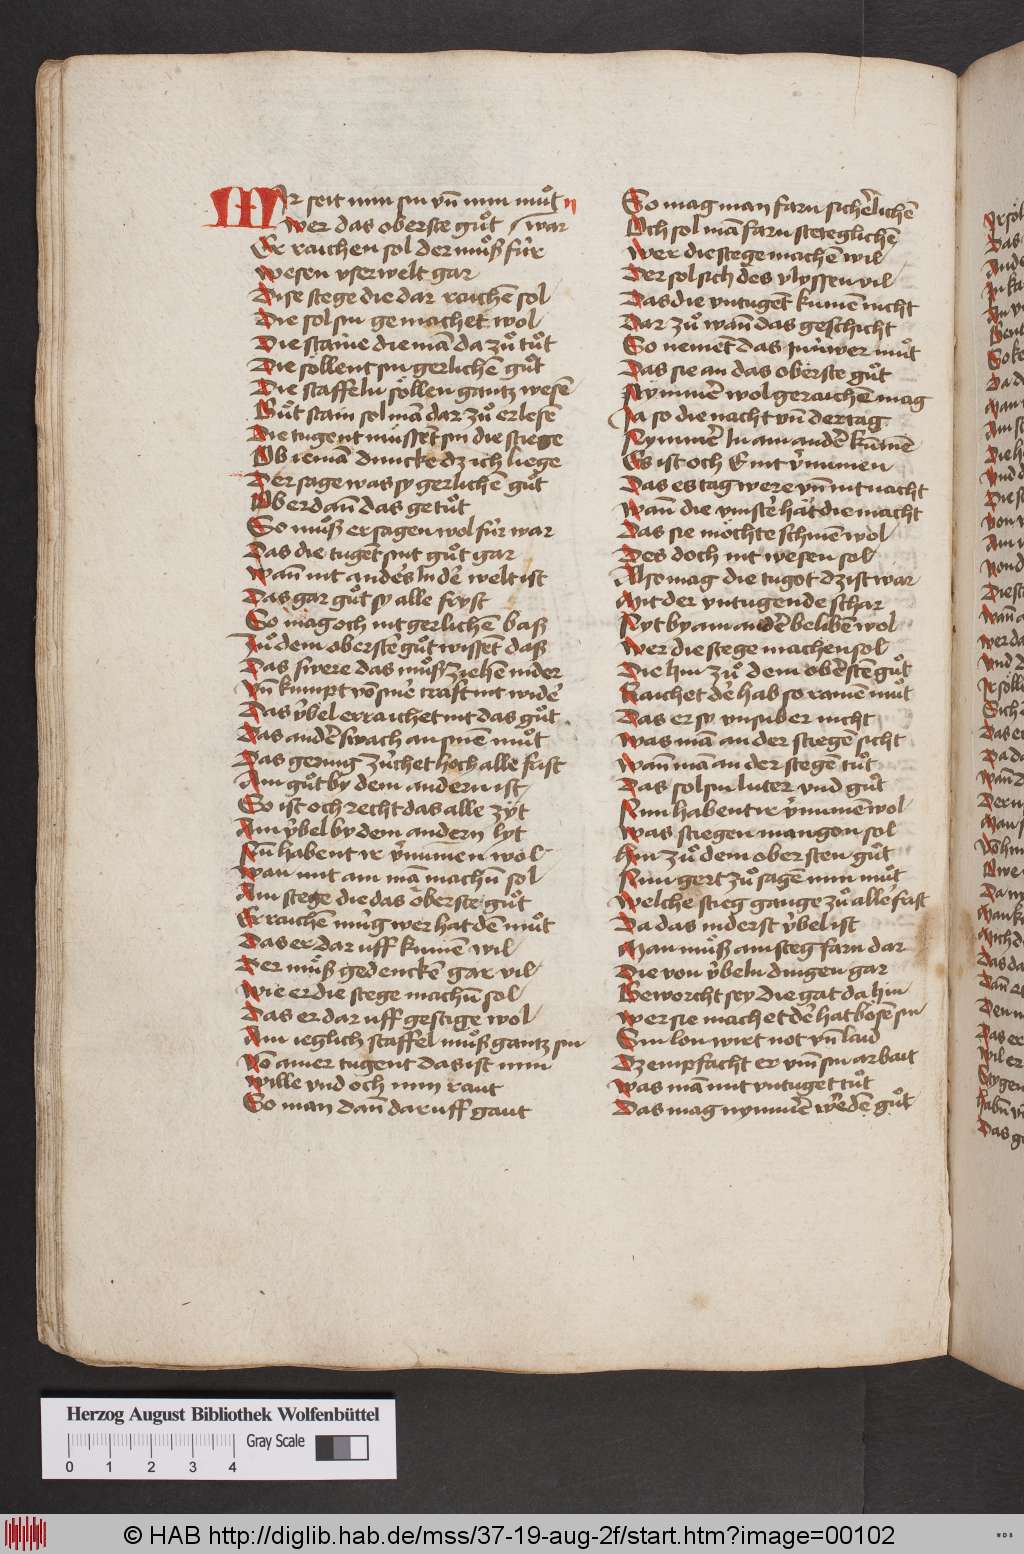 MIr seit min sin vn̄ min můt
Wer das oberste gůt / war
Er raichen sol der můß für
Wesen vser welt gar
Dise stege die dar raichē sol
Die sol sin gemachet wol
Die staine die mā da zů tůt
Die söllent sin gerlichē gůt
Die staffeln söllen gantz wesē
Gůt stain sol mā dar zů erlesē
Die tugent müssēt sin die stiege
Ob iemā duncke dz ich liege
Der sage was sy gerlichē gůt
Oder dañ das getůt
So můß er sagen wol für war
Das die tugēt sint gůt gar
Wañ nit anders In der welt ist
Das gar gůt sy alle fryst
So mag och nit gerlichē baß
Zů dem oberstē gůt wissēt daß
Das swere das můß ziehen nider
Vn̄ kumpt vō siner craft nit wider
Das ÿbel erraichet nit das gůt
Das andēr swach an sinē můt
Das gering zühet hoch alle frist
Ain gůt by dem andern ist
So ist och recht das alle zÿt
Ain ÿbel by dem andern lyt
Nun habent ir v̓numen wol
Wan mit ain mā machn̄ sol
Ain stege die das oberste gůt
Er raichē müg wer hat dē můt
Das er dar uff kumē wil
Der můß gedenckē gar vil
Wie er die stege machn̄ sol
Das er dar uff gestige wol
Ain ieglich staffel můß gantz sin
Vō ainer tugent das ist min
Wille vnd och min raut
So man dañ dar uff gaut
So mag man farn sicherlichē
Och sol mā farn steteglichē
Wer die stege machē wil
Der sol sich des vlyssen vil
Das die vntugēt kumē nicht
Dar zů wañ das geschicht
So nemēt das Inüwer můt
Das sie an das oberste gůt
Nymmer wol geraichē mag
Ja so die nacht vn̄ der tag
Nymmer In ain andēr kumē
Es ist och E nit v̓numen
Das es tag were vn̄ nit nacht
Wañ die vinster hat die macht
Das sie möchte schinē wol
Des doch nit wesen sol
Also mag die tugot dz ist war
Mit der vntugende schar
Nyt by ain andēr belibē wol
Wer die stege machen sol
Die Im zů dem oberstē gůt
Raichet der hab so rainē můt
Das er sy vnsuber nicht
Was mā an der stiegē sicht
Wañ mā an der stegē tůt
Das sol sin luter vnd gůt
Nun habent ir v̓numē wol
Was stiegen man gon sol
Hin zů dem obersten gůt
Nun gert zů sagē min můt
Welche stieg gange zů aller frist
Da das niderst ÿbel ist
Man můß ain steg farn dar
Die von ÿbeln dingen gar
Geworcht sey die gat da hin
Wer sie machet der hat bösē sin
Sin lon wirt not vn̄ laid
Dz empfacht er vm̄ sin arbait
Was mā mit vntuget tůt
Das mag nymmer werdē gůt
Herzog August Bibliothek Wolfenbüttel
Gray Scale
0 1 2 3 4
© HAB http://diglib.hab.de/mss/37-19-aug-2f/start.htm?image=00102